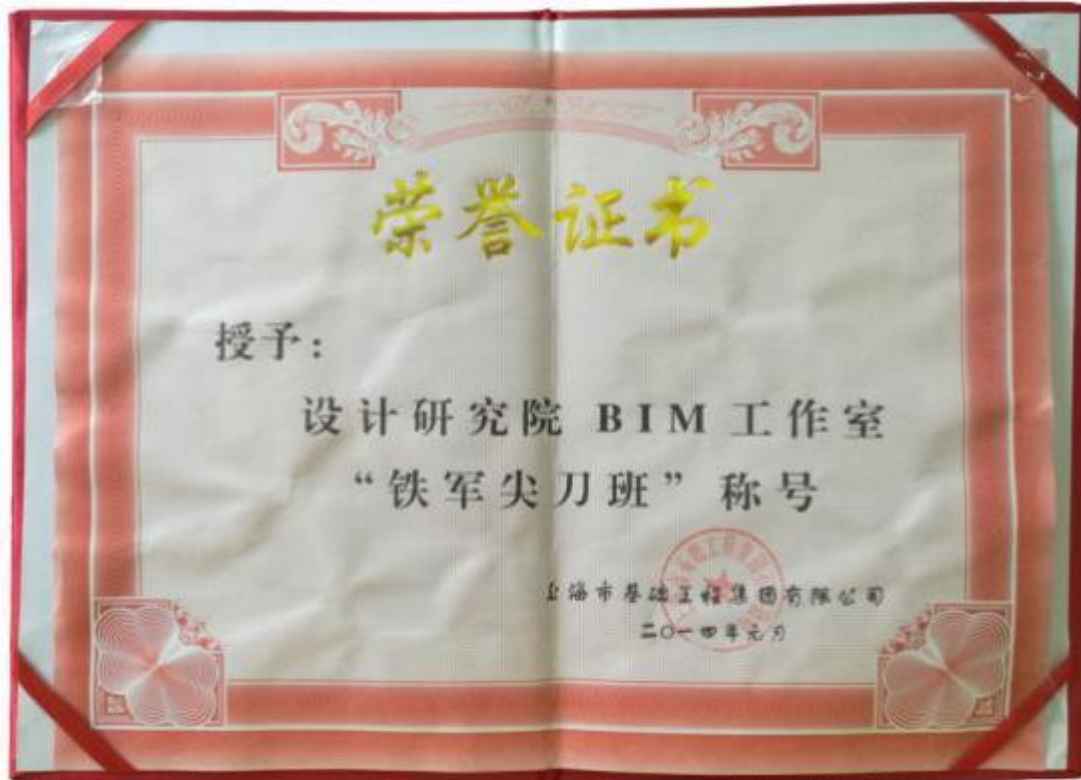 荣誉证书
授予：
设计研究院 BIM 工作室
“铁军尖刀班”称号
上海市基础工程集团有限公司
二〇一四年元月